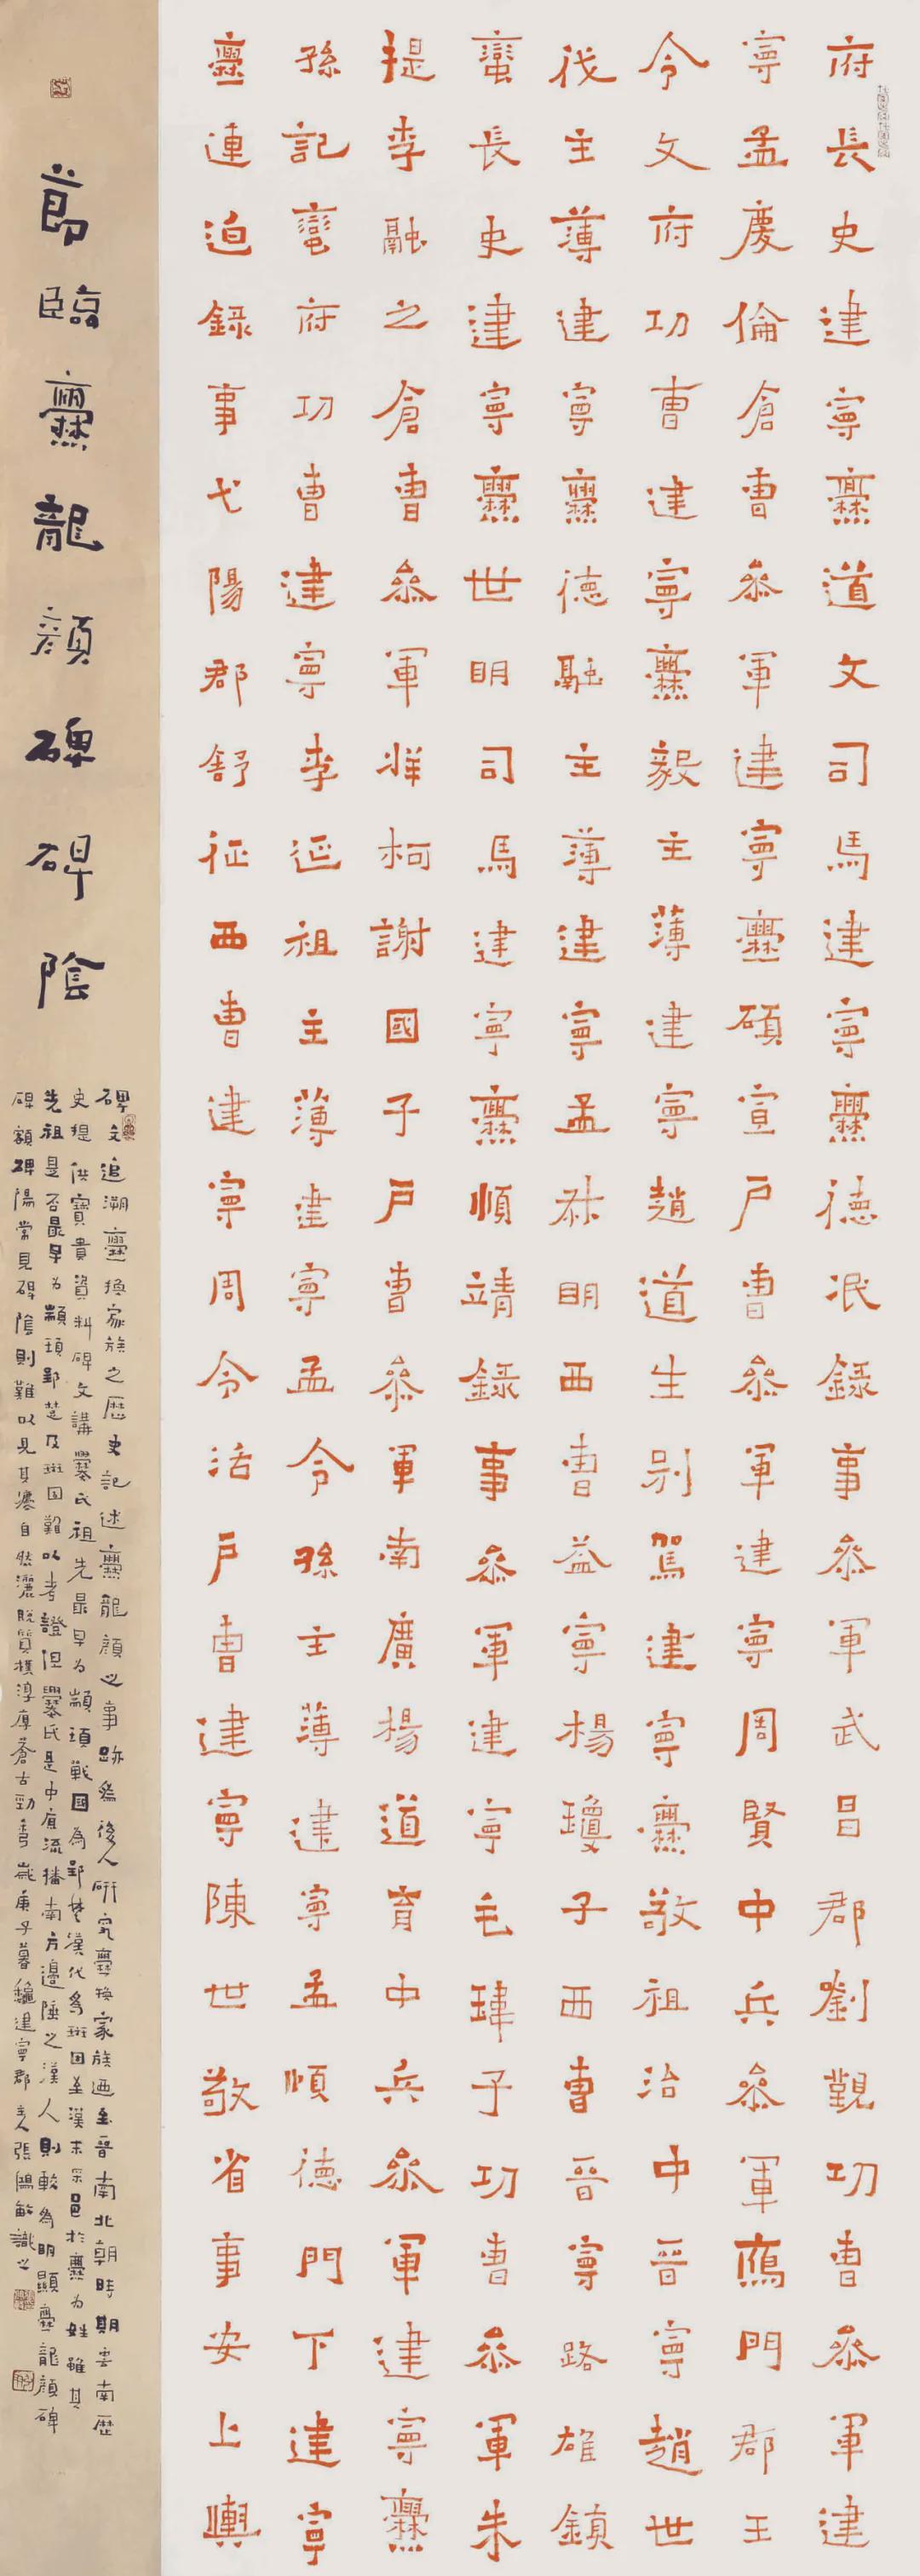 府長史建寧爨道文司馬建寧爨德泯錄事參軍武昌郡劉覲功曹參軍建
寧孟慶倫倉曹參軍建寧爨碩宣戶曹參軍建寧周賢中兵參軍鴈門郡王
令文府功曹建寧爨毅主薄建寧趙道生別駕建寧爨敬祖治中晉寧趙世
伐主薄建寧爨德融主薄建寧孟叔明西曹益寧楊瓊子西曹晉寧路雄鎮
蠻長史建寧爨世明司馬建寧爨順靖錄事參軍建寧毛瑋子功曹參軍朱
提李融之倉曹參軍牂柯謝國子戶曹參軍南廣楊道育中兵參軍建寧爨
孫記蠻府功曹建寧李延祖主薄建寧孟令孫主薄建寧孟順德門下建寧
爨連迫錄事弋陽郡舒征西曹建寧周令活戶曹建寧陳世敬省事安上輿
節臨爨龍顏碑碑陰
碑文追溯爨換家族之歷史記述爨龍顏之事跡為後人研究爨換家族迺至晉南北朝時期雲南歷
史提供寶貴資料碑文講爨氏祖先最早為顓頊戰國為郢楚漢代為班固至漢末采邑於爨為姓雖其
先祖是否最早為顓頊郢楚及班固難以考證但爨氏是中原流播南方邊陲之漢人則較為明顯爨龍顏碑
碑額碑陽常見碑陰則難以見其自然灑脫質樸淳厚蒼古勁秀歲庚子暮龝建寧郡張鴻敏識之